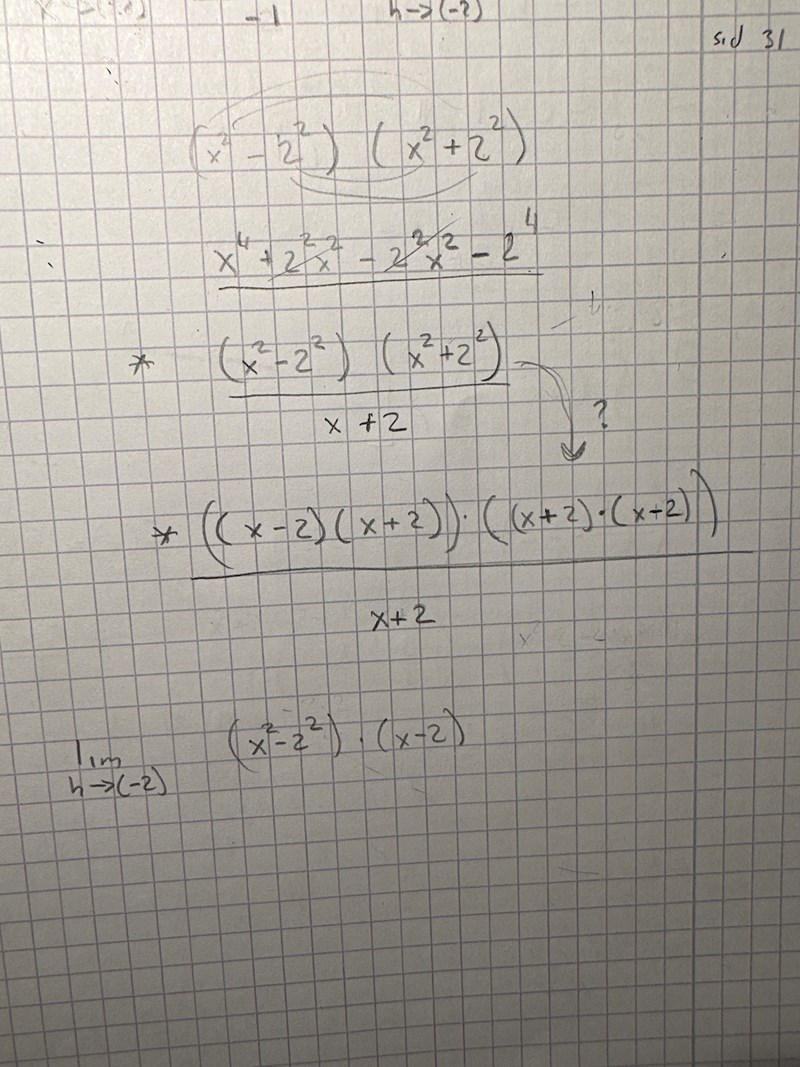 -1 h→(-2)
sid 31
(x² - 2²) (x² + 2²)
x⁴ + 2²x² - 2²x² - 2⁴
* (x² - 2²) (x² + 2²)
x + 2
?
* ((x - 2)(x + 2)) · ((x + 2) · (x + 2))
x + 2
lim (x² - 2²) · (x - 2)
h→(-2)